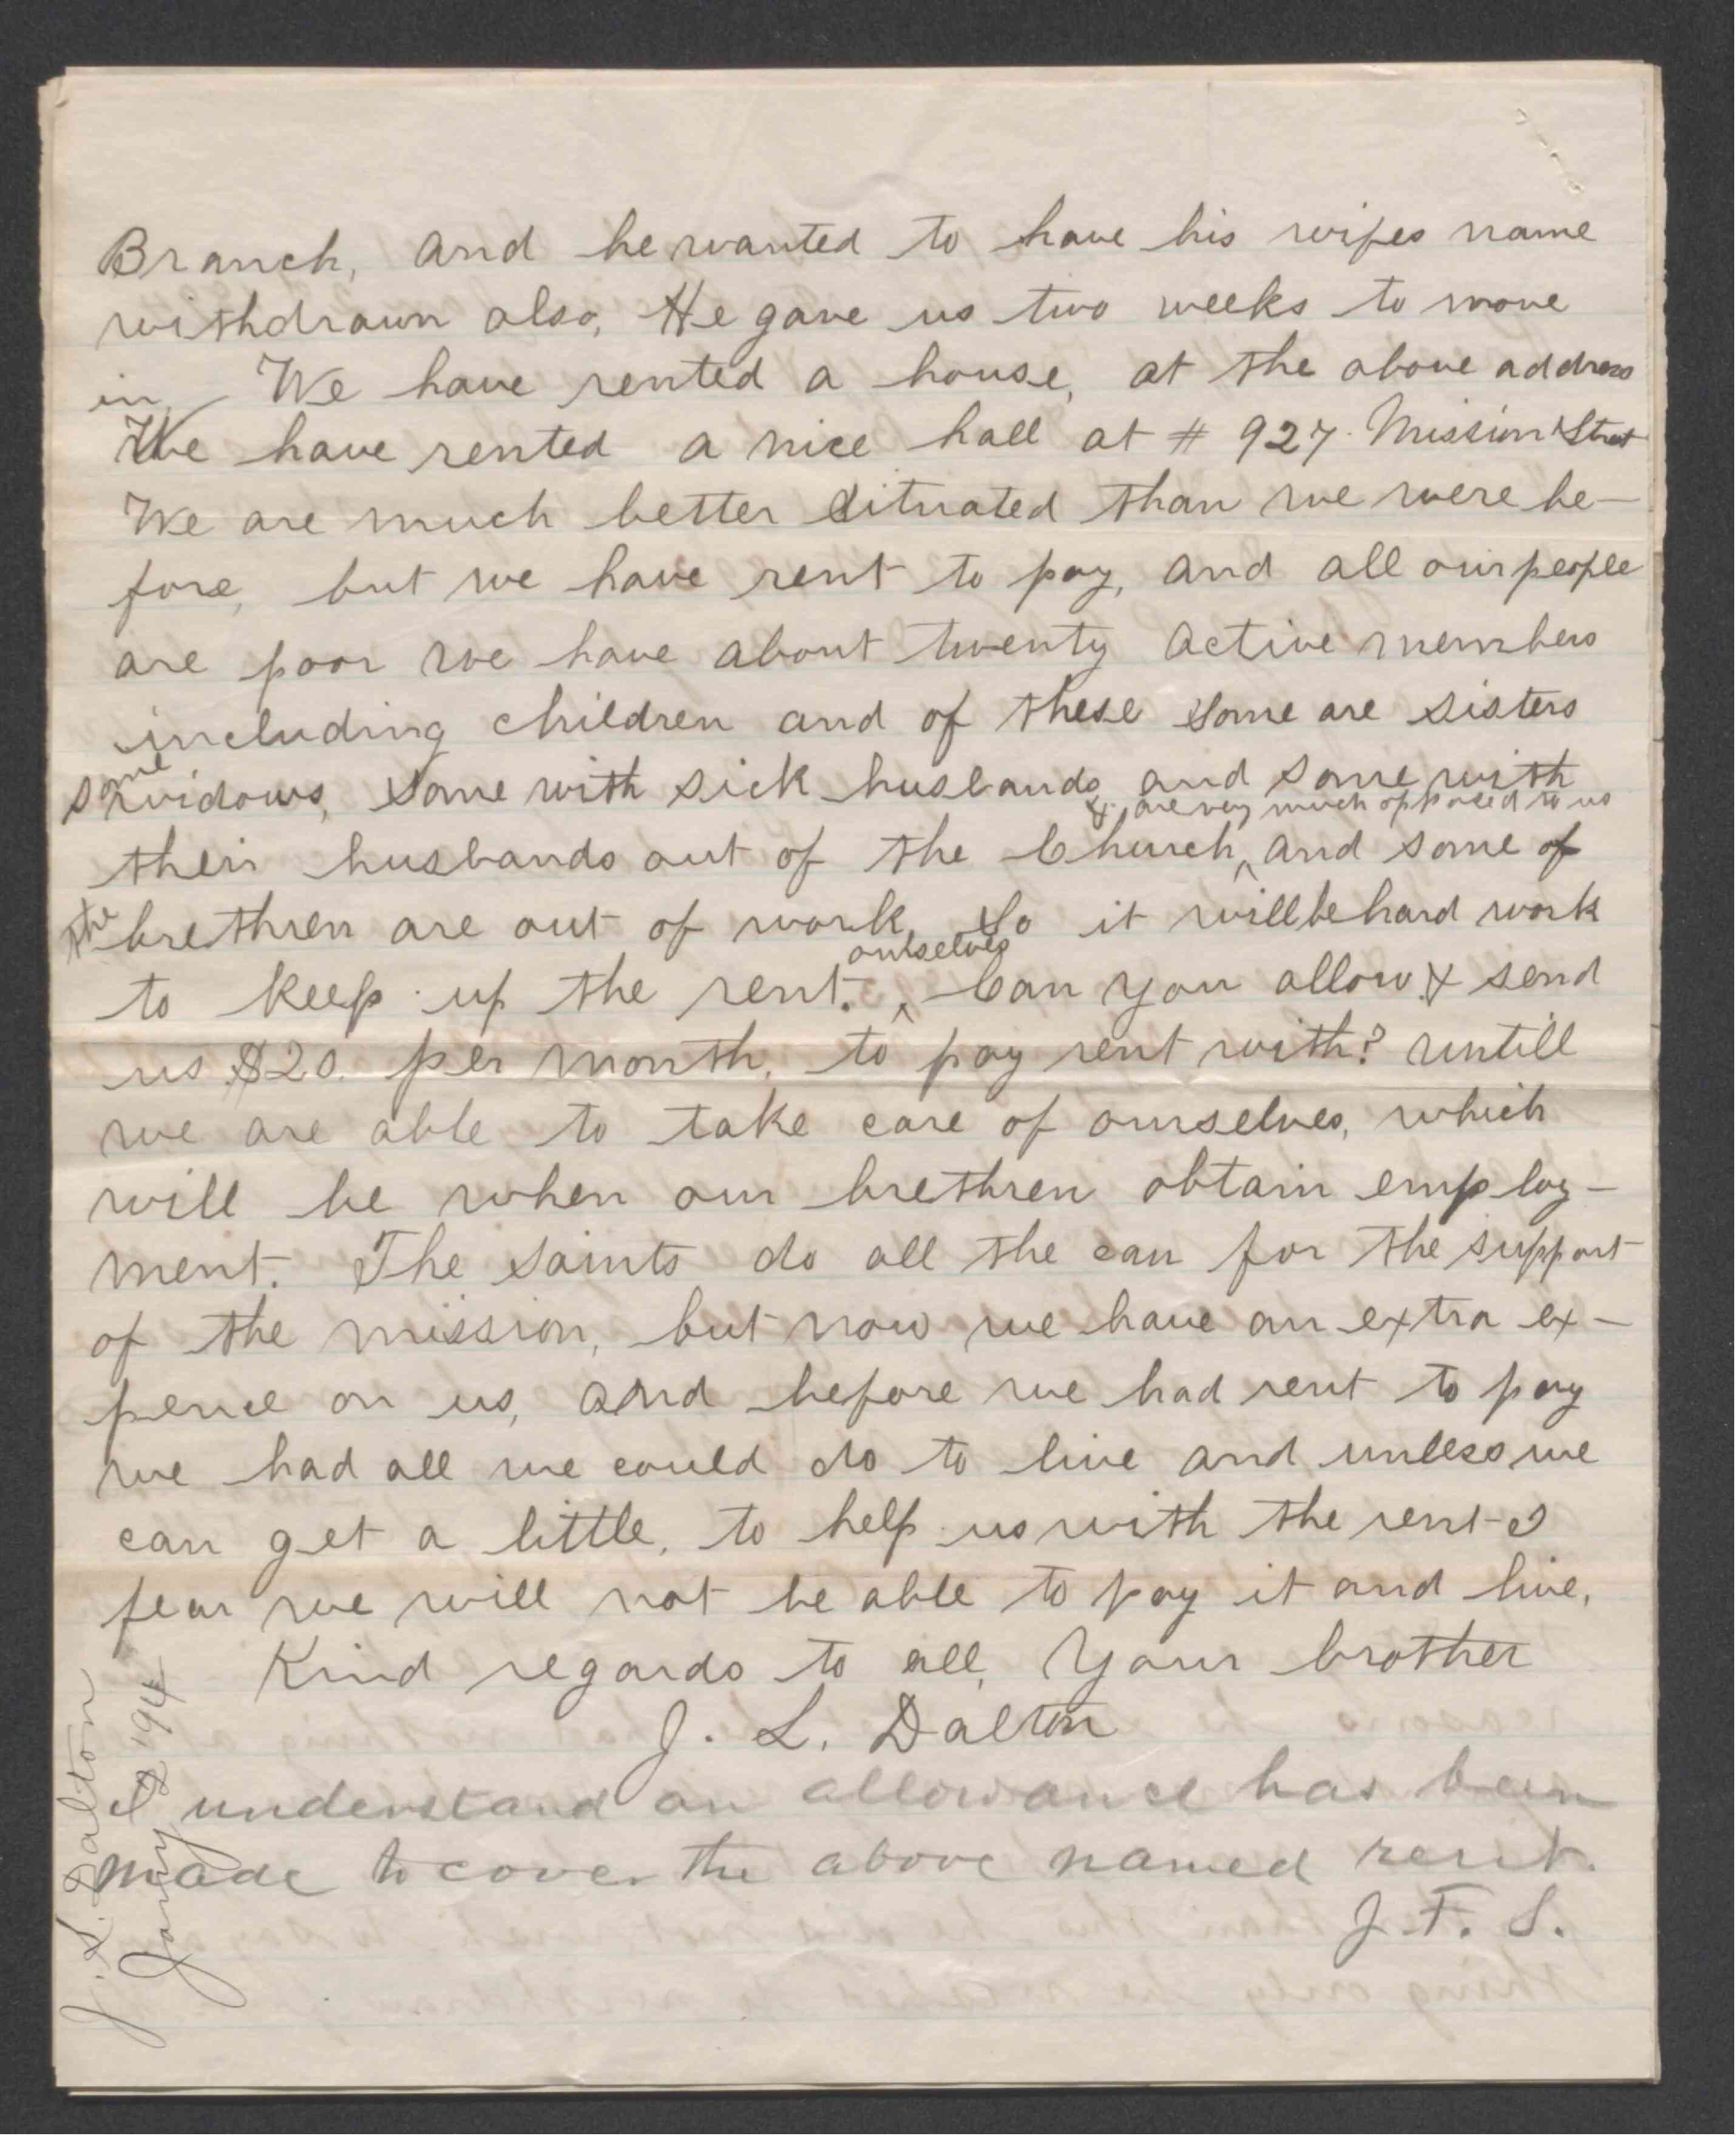 Branch, and he wanted to have his wifes name
withdrawn also, He gave us two weeks to move
in. We have rented a house, at the above address
We have rented a nice hall at # 927. Mission Street
We are much better situated than we were be-
fore, but we have rent to pay, and all our people
are poor we have about twenty active members
including children and of these some are sisters
some widows, some with sick husbands, and some with
& are very much opposed to us
their husbands out of the Church, ^ and some of
the brethren are out of work, So it will be hard work
ourselves
to keep up the rent. ^ Can you allow & send
us $20. per month, to pay rent with? untill
we are able to take care of ourselves, which
will be when our brethren obtain employ-
ment. The Saints do all the can for the support
of the mission, but now we have an extra ex-
pence on us, and before we had rent to pay
we had all we could do to live and unless we
can get a little, to help us with the rent I
fear we will not be able to pay it and live,
Kind regards to all, Your brother
J. L. Dalton
I understand an allowance has been
made to cover the above named rent.
J. F. S.
J. L. Dalton
Jany 2 '94